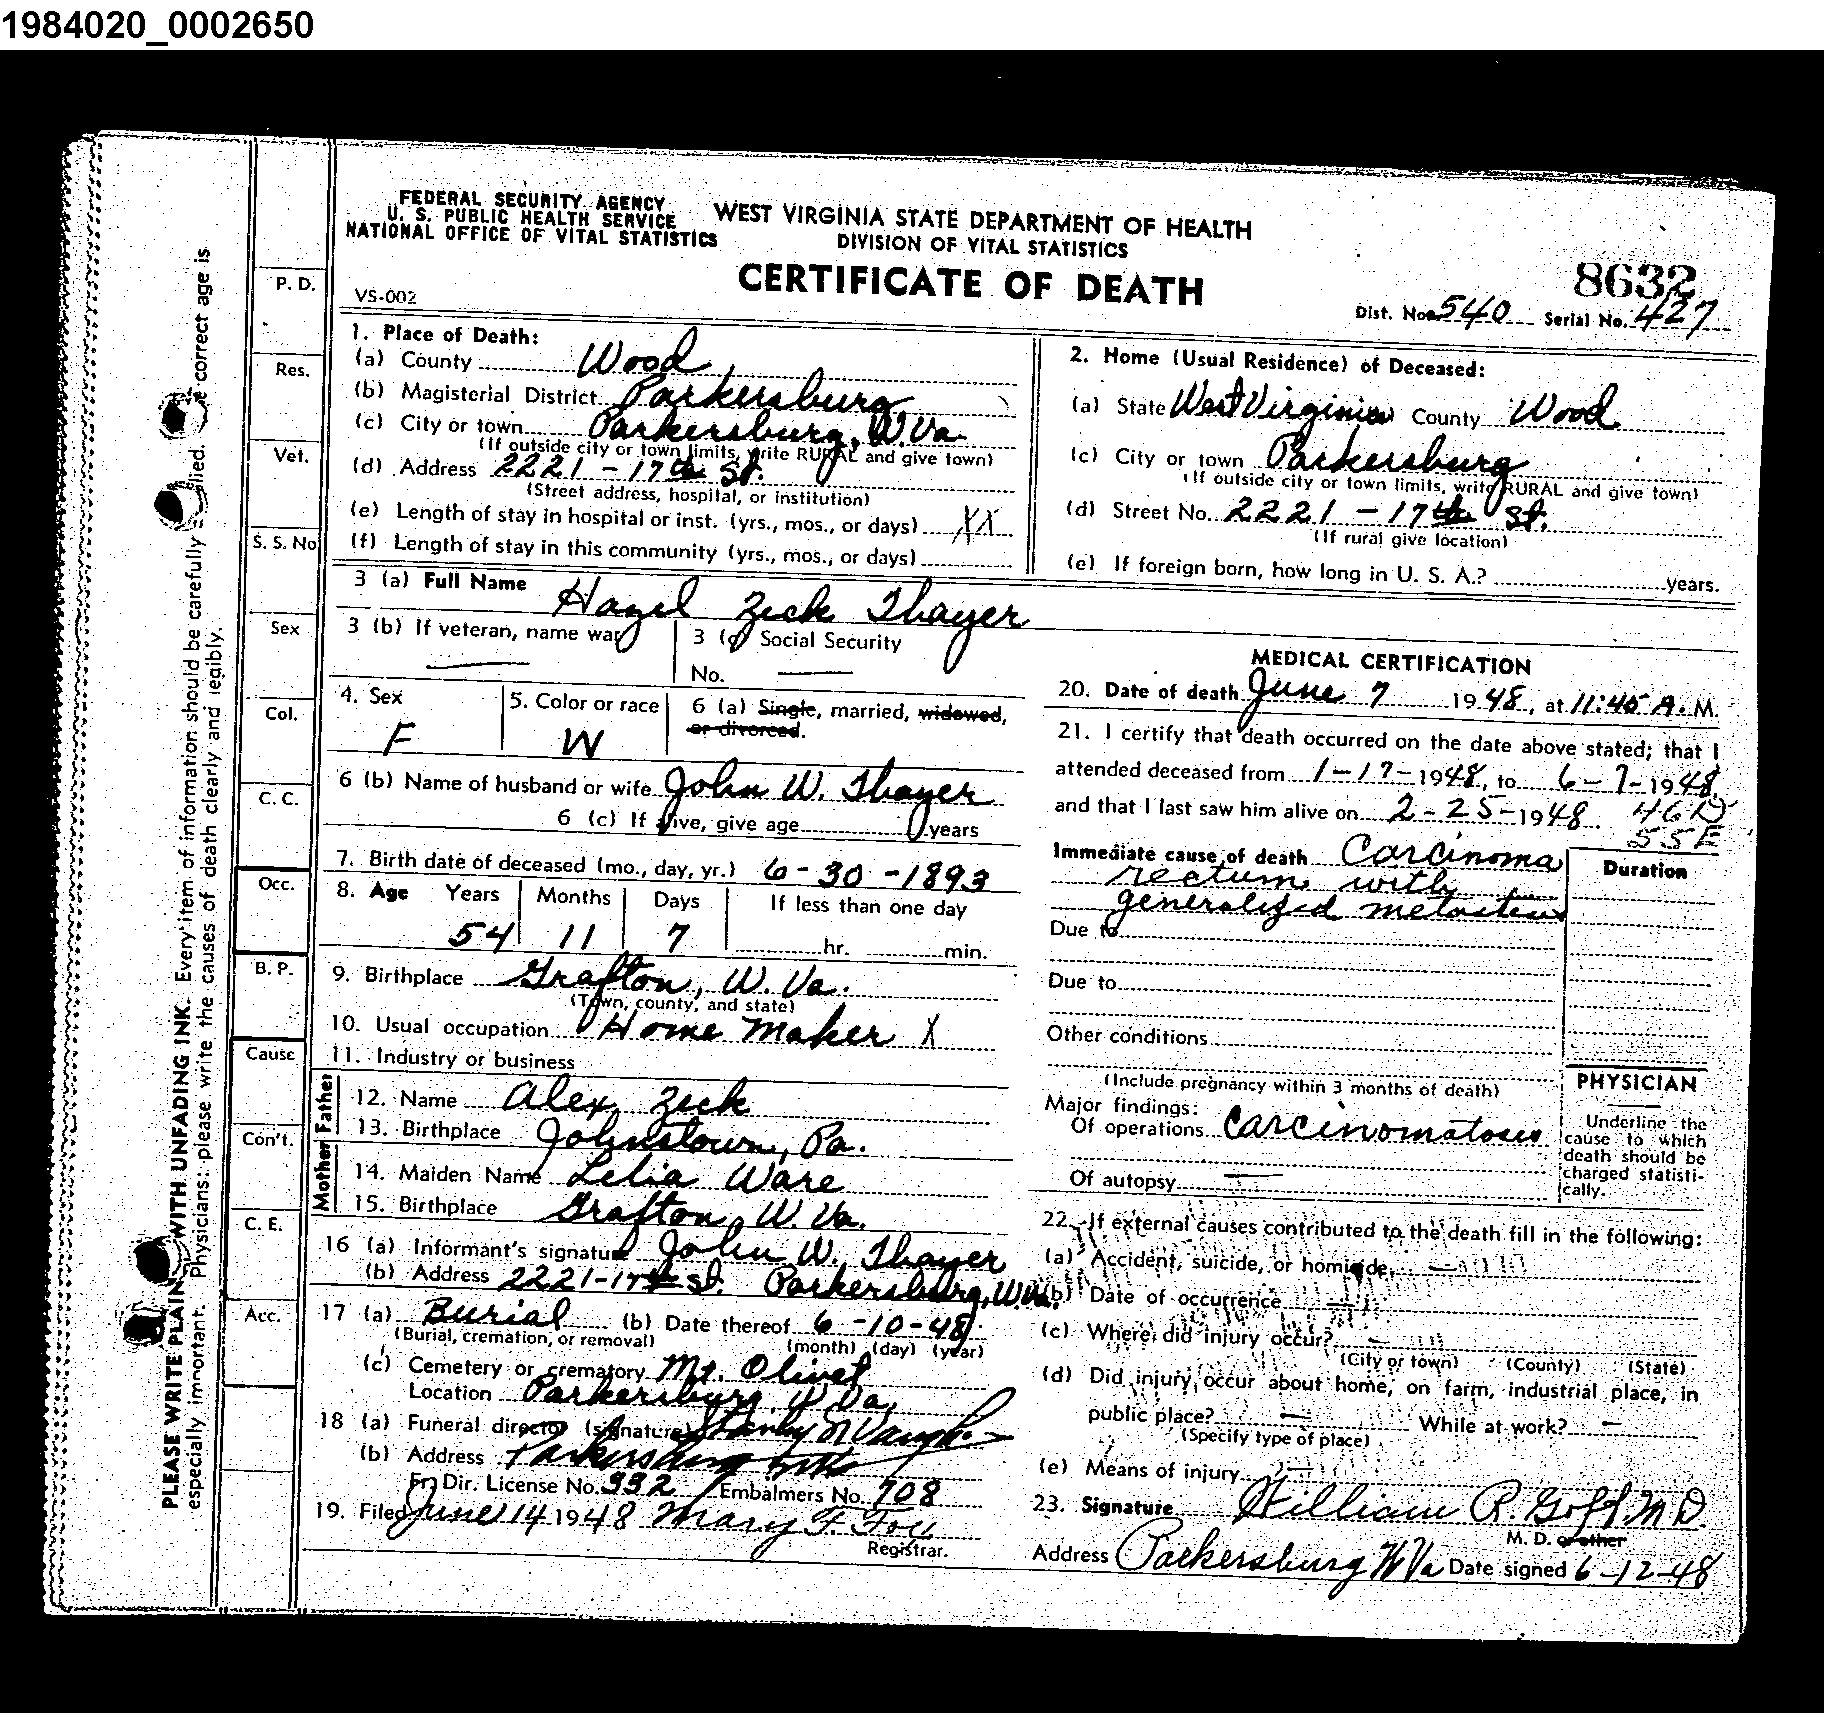 1984020_0002650
FEDERAL SECURITY AGENCY
U. S. PUBLIC HEALTH SERVICE
NATIONAL OFFICE OF VITAL STATISTICS
WEST VIRGINIA STATE DEPARTMENT OF HEALTH
DIVISION OF VITAL STATISTICS
CERTIFICATE OF DEATH
VS-002
8632
Dist. No. 540 Serial No. 427
1. Place of Death:
(a) County Wood
(b) Magisterial District Parkersburg
(c) City or town Parkersburg, W.Va.
(If outside city or town limits, write RURAL and give town)
(d) Address 2221 - 17th St.
(Street address, hospital, or institution)
(e) Length of stay in hospital or inst. (yrs., mos., or days) XX
(f) Length of stay in this community (yrs., mos., or days)
2. Home (Usual Residence) of Deceased:
(a) State West Virginia County Wood
(c) City or town Parkersburg
(If outside city or town limits, write RURAL and give town)
(d) Street No. 2221 - 17th St.
(If rural give location)
(e) If foreign born, how long in U. S. A.? years.
3 (a) Full Name Hazel Zeck Thayer
3 (b) If veteran, name war
3 (c) Social Security
No.
4. Sex F
5. Color or race W
6 (a) Single, married, widowed,
or divorced.
6 (b) Name of husband or wife John W. Thayer
6 (c) If alive, give age years
7. Birth date of deceased (mo., day, yr.) 6-30-1893
8. Age Years Months Days If less than one day
54 11 7 hr. min.
9. Birthplace Grafton, W. Va.
(Town, county, and state)
10. Usual occupation Home Maker X
11. Industry or business
Father
12. Name Alex Zeck
13. Birthplace Johnstown, Pa.
Mother
14. Maiden Name Lelia Ware
15. Birthplace Grafton, W. Va.
16 (a) Informant's signature John W. Thayer
(b) Address 2221-17th St. Parkersburg, W.Va.
17 (a) Burial (b) Date thereof 6-10-48
(Burial, cremation, or removal) (month) (day) (year)
(c) Cemetery or crematory Mt. Olivet
Location Parkersburg, W. Va.
18 (a) Funeral director (signature) Stanley N Vaughn
(b) Address Parkersburg
Fn. Dir. License No. 992 Embalmers No. 908
19. Filed June 14 1948 Mary F.
Registrar.
MEDICAL CERTIFICATION
20. Date of death June 7 1948, at 11:45 A. M.
21. I certify that death occurred on the date above stated; that I
attended deceased from 1-17-1948, to 6-7-1948,
and that I last saw him alive on 2-25-1948. 46D
55E
Immediate cause of death Carcinoma
rectum with
generalized metastases
Duration
Due to
Due to
Other conditions
(Include pregnancy within 3 months of death)
Major findings:
Of operations Carcinomatosis
Of autopsy
PHYSICIAN
Underline the
cause to which
death should be
charged statisti-
cally.
22. If external causes contributed to the death fill in the following:
(a) Accident, suicide, or homicide
(b) Date of occurrence
(c) Where did injury occur?
(City or town) (County) (State)
(d) Did injury occur about home, on farm, industrial place, in
public place? While at work?
(Specify type of place)
(e) Means of injury
23. Signature William R. Goff. M D.
M. D. or other
Address Parkersburg W Va Date signed 6-12-48
P. D.
Res.
Vet.
S. S. No
Sex
Col.
C. C.
Occ.
B. P.
Cause
Con't.
C. E.
Acc.
PLEASE WRITE PLAIN WITH UNFADING INK. Every item of information should be carefully correct age is
especially important. Physicians: please write the causes of death clearly and legibly.